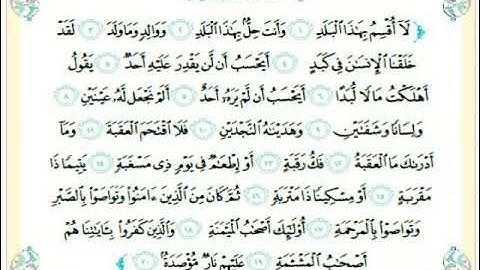 لَآ أُقْسِمُ بِهَٰذَا ٱلْبَلَدِ ١ وَأَنتَ حِلٌّۢ بِهَٰذَا ٱلْبَلَدِ ٢ وَوَالِدٍ وَمَا وَلَدَ ٣ لَقَدْ
خَلَقْنَا ٱلْإِنسَٰنَ فِى كَبَدٍ ٤ أَيَحْسَبُ أَن لَّن يَقْدِرَ عَلَيْهِ أَحَدٌ ٥ يَقُولُ
أَهْلَكْتُ مَالًا لُّبَدًا ٦ أَيَحْسَبُ أَن لَّمْ يَرَهُۥٓ أَحَدٌ ٧ أَلَمْ نَجْعَل لَّهُۥ عَيْنَيْنِ ٨
وَلِسَانًا وَشَفَتَيْنِ ٩ وَهَدَيْنَٰهُ ٱلنَّجْدَيْنِ ١٠ فَلَا ٱقْتَحَمَ ٱلْعَقَبَةَ ١١ وَمَآ
أَدْرَىٰكَ مَا ٱلْعَقَبَةُ ١٢ فَكُّ رَقَبَةٍ ١٣ أَوْ إِطْعَٰمٌ فِى يَوْمٍ ذِى مَسْغَبَةٍ ١٤ يَتِيمًا ذَا
مَقْرَبَةٍ ١٥ أَوْ مِسْكِينًا ذَا مَتْرَبَةٍ ١٦ ثُمَّ كَانَ مِنَ ٱلَّذِينَ ءَامَنُوا۟ وَتَوَاصَوْا۟ بِٱلصَّبْرِ
وَتَوَاصَوْا۟ بِٱلْمَرْحَمَةِ ١٧ أُو۟لَٰٓئِكَ أَصْحَٰبُ ٱلْمَيْمَنَةِ ١٨ وَٱلَّذِينَ كَفَرُوا۟ بِـَٔايَٰتِنَا هُمْ
أَصْحَٰبُ ٱلْمَشْـَٔمَةِ ١٩ عَلَيْهِمْ نَارٌ مُّؤْصَدَةٌۢ ٢٠